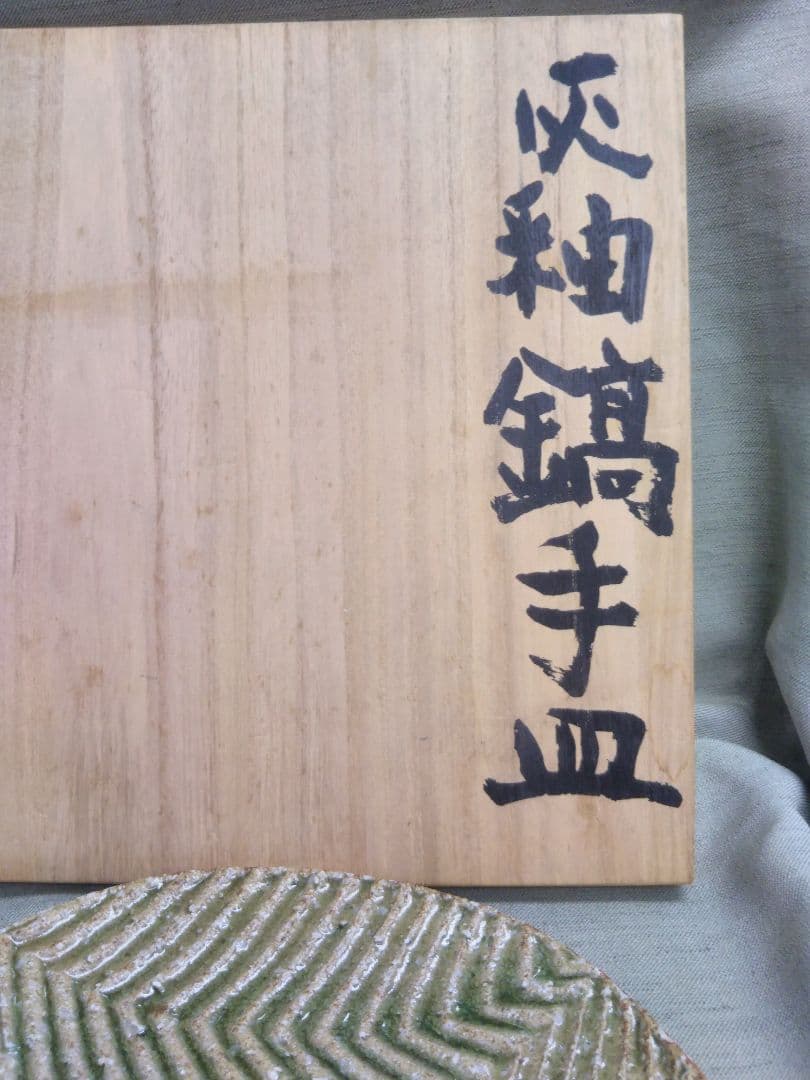 灰釉鎬手皿